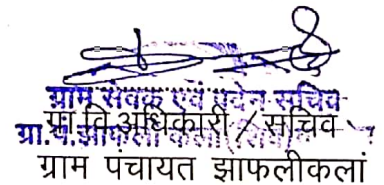 ग्राम सेवक एवं पदेन सचिव
ग्रा वि अधिकारी / सचिव
ग्रा.पं.झाफली कलां
ग्राम पंचायत झाफलीकलां